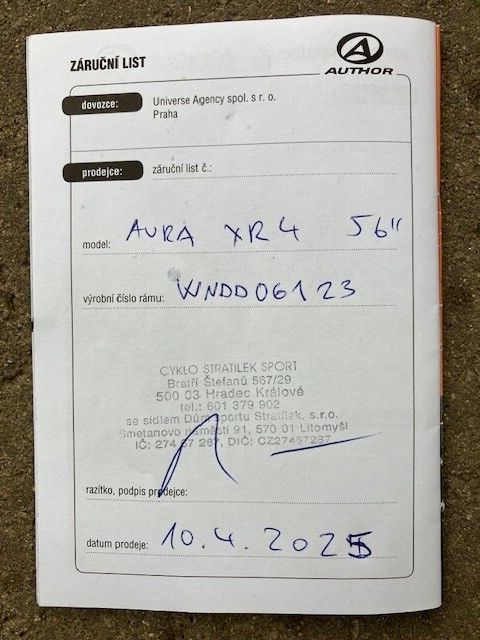 ZÁRUČNÍ LIST
AUTHOR
dovozce: Universe Agency spol. s r. o.
Praha
prodejce: záruční list č.:
model: AURA XR4 56"
výrobní číslo rámu: WNDD06123
CYKLO STRATILEK SPORT
Bratří Štefanů 567/29
500 03 Hradec Králové
tel.: 601 379 902
se sídlem Dům sportu Stratilek, s.r.o.
Smetanovo náměstí 91, 570 01 Litomyšl
IČ: 274 67 287, DIČ: CZ27467287
razítko, podpis prodejce:
datum prodeje: 10.4.2025